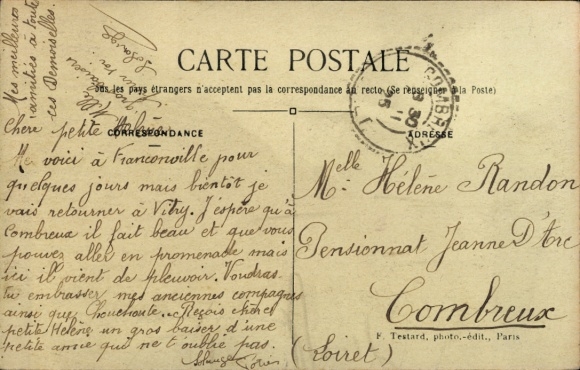 Mes meilleures
amitiés à toute
ces Demoiselles.
CARTE POSTALE
Tous les pays étrangers n'acceptent pas la correspondance au recto (Se renseigner à la Poste)
CORRESPONDANCE
ADRESSE
COMBREUX
Chère petite Hélène
Me voici à Franconville pour
quelques jours mais bientôt je
vais retourner à Vitry. J'espère qu'à
Combreux il fait beau et que vous
pouvez aller en promenade mais
ici il vient de pleuvoir. Voudras-
tu embrasser mes anciennes compagnes
ainsi que Chouchoute. Reçois chère
petite Hélène un gros baiser d'une
petite amie qui ne t'oublie pas.
Solange
Melle Hélène Randon
Pensionnat Jeanne D'Arc
Combreux
(Loiret)
F. Testard, photo.-édit., Paris